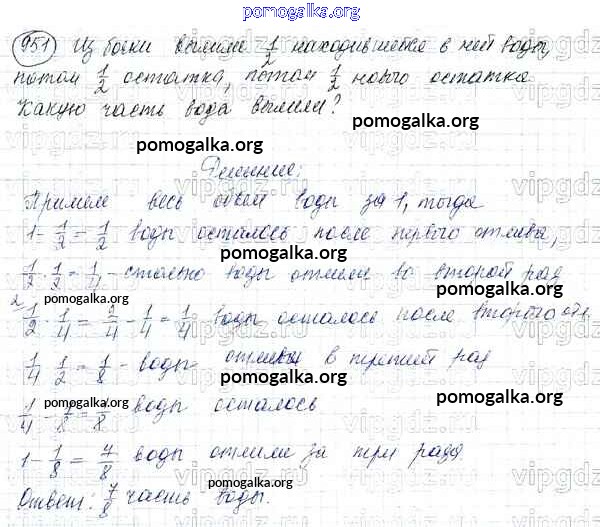 pomogalka.org
951 Из бочки вылили 1/2 находившейся в ней воды,
потом 1/2 остатка, потом 1/2 нового остатка
Какую часть вода вылили?
pomogalka.org pomogalka.org
Решение:
Примем весь объем воды за 1, тогда
1 - 1/2 = 1/2 воды осталось после первого отлива,
1/2 · 1/2 = 1/4 - воды отлили во второй раз
pomogalka.org pomogalka.org
1/2 - 1/4 = 2/4 - 1/4 = 1/4 воды осталось после второго
1/4 · 1/2 = 1/8 - воды отлили в третий раз
pomogalka.org
1/4 - 1/8 = 1/8 воды осталось
pomogalka.org
1 - 1/8 = 7/8 воды отлили за три раза
pomogalka.org
Ответ: 7/8 часть воды.
pomogalka.org
vipgdz.ru